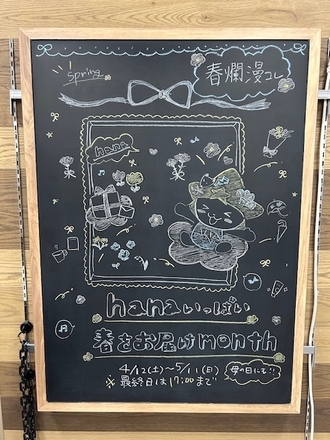 spring
春爛漫コレ
hana
hanaいっぱい
春をお届けmonth
4/12(土)〜5/11(日)
母の日にも!!
※最終日は17:00まで